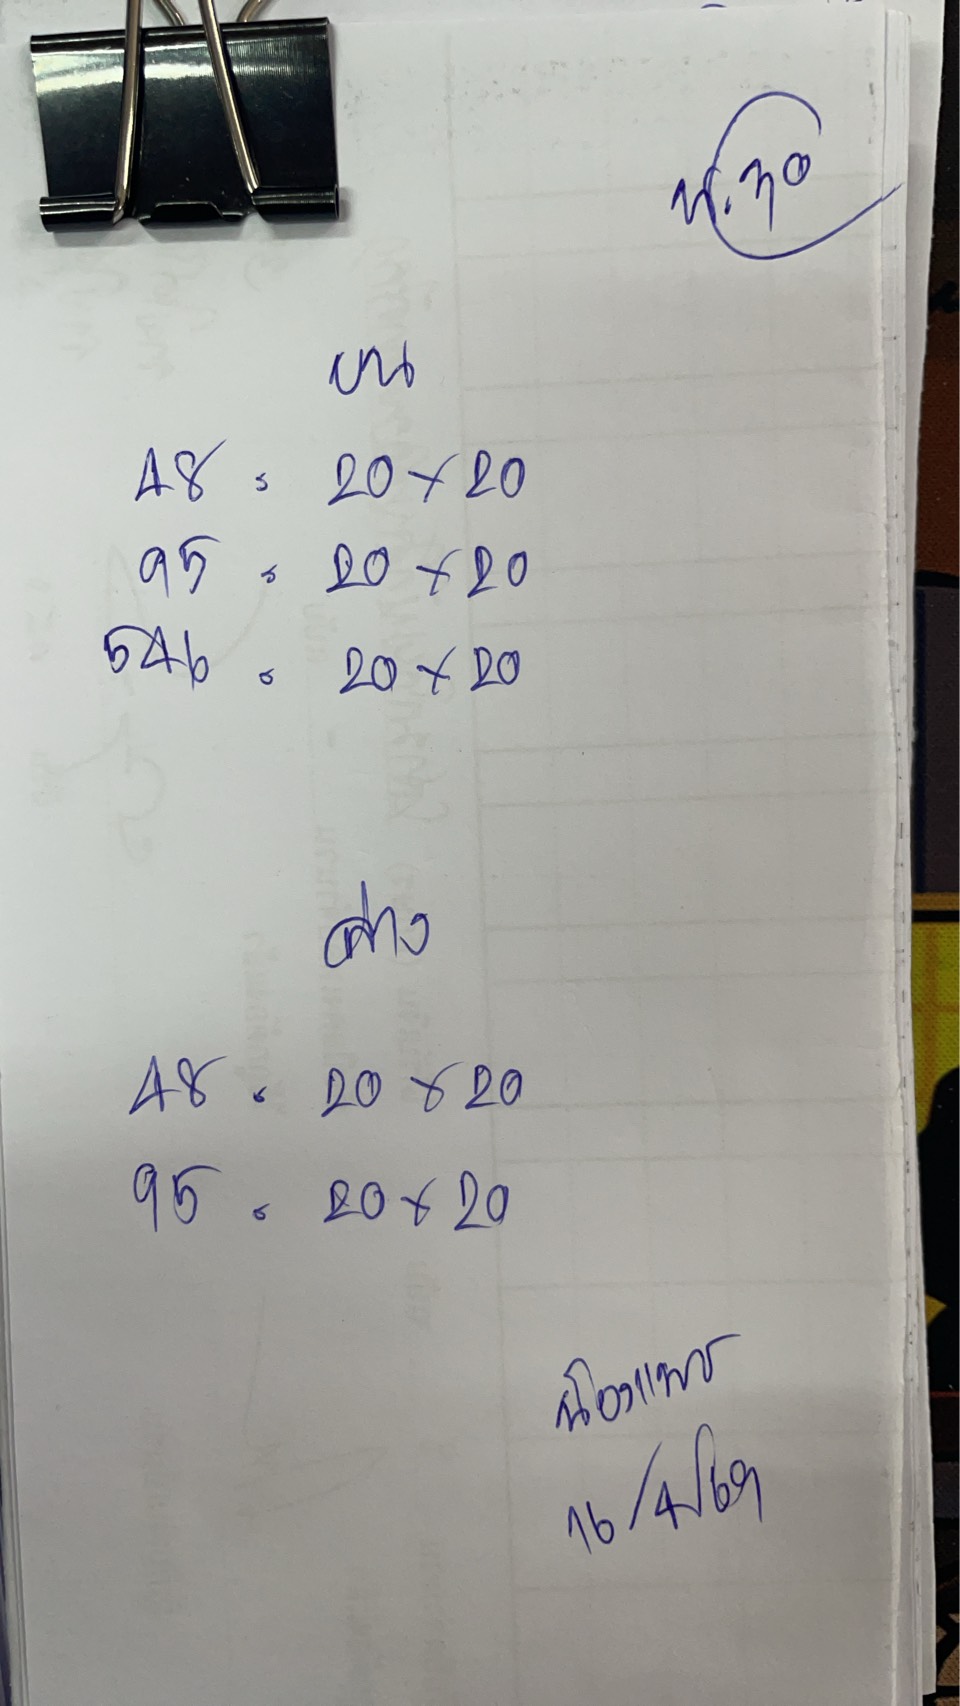 บน
48 = 20x20
95 = 20x20
546 = 20x20
ล่าง
48 = 20x20
95 = 20x20
น้องแพร
16/4/69